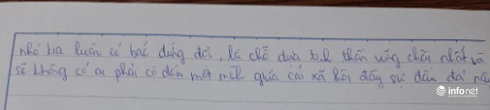 nhé Kia luôn có bác đứng đợi, là chỗ dựa tinh thần vững chãi nhất và
sẽ không có ai phải cô đơn một mình giữa cái xã hội đầy sự dâu
infonet